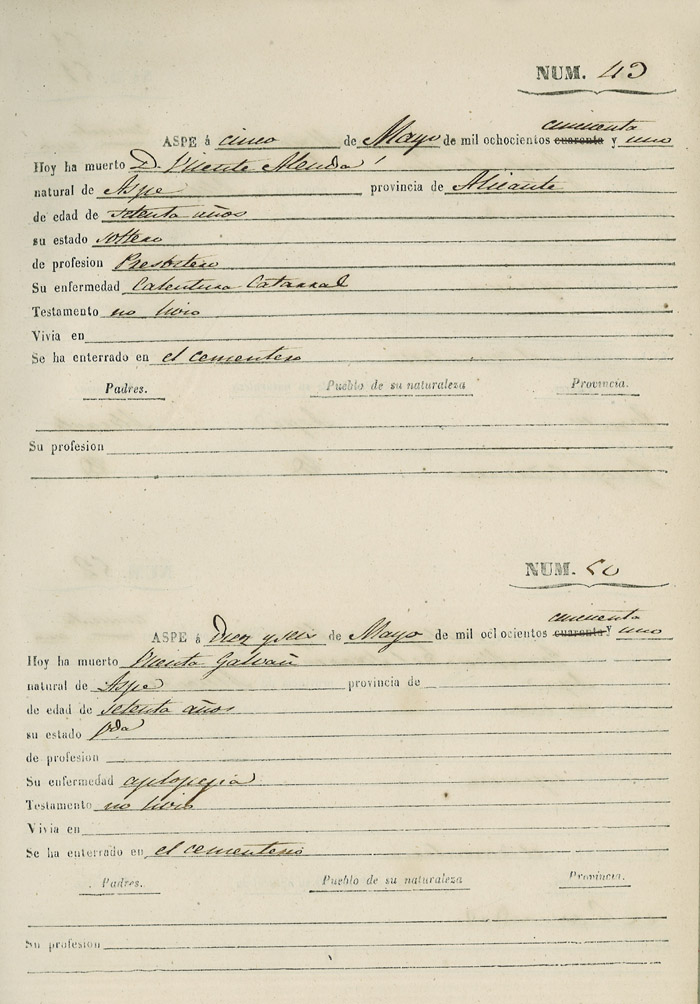 NUM. 49
cincuenta
ASPE á cinco de Mayo de mil ochocientos cuarenta y uno
Hoy ha muerto D. Vicente
natural de Aspe provincia de Alicante
de edad de setenta años
su estado soltero
de profesion Presbitero
Su enfermedad Calentura Catarral
Testamento no hizo
Vivia en
Se ha enterrado en el cementerio
Padres. Pueblo de su naturaleza Provincia.
Su profesion
NUM. 50
cincuenta
ASPE á Diez y seis de Mayo de mil ochocientos cuarenta y uno
Hoy ha muerto Vicenta Galvañ
natural de Aspe provincia de
de edad de setenta años
su estado Vda
de profesion
Su enfermedad aplopegia
Testamento no hizo
Vivia en
Se ha enterrado en el cementerio
Padres. Pueblo de su naturaleza Provincia.
Su profesion